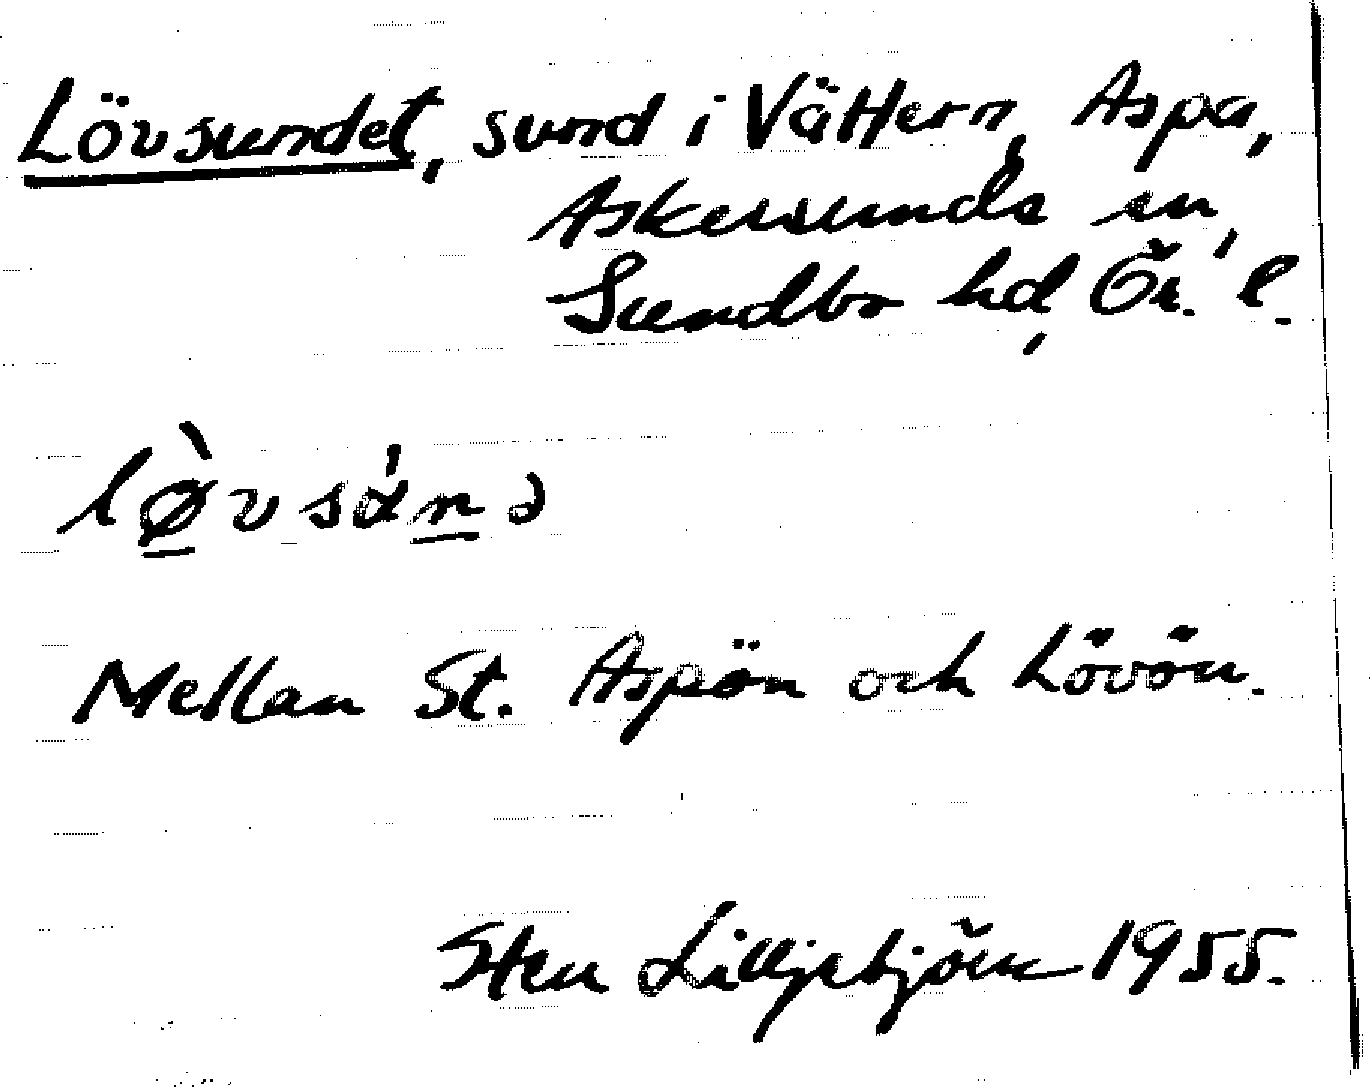 Lövsundet, sund i Vättern, Aspa,
Askersunds sn,
Sundbo hd, Ör. l.
lø̀vsánə
Mellan St. Aspön och Lövön.
Sten Lilljebjörn 1955.